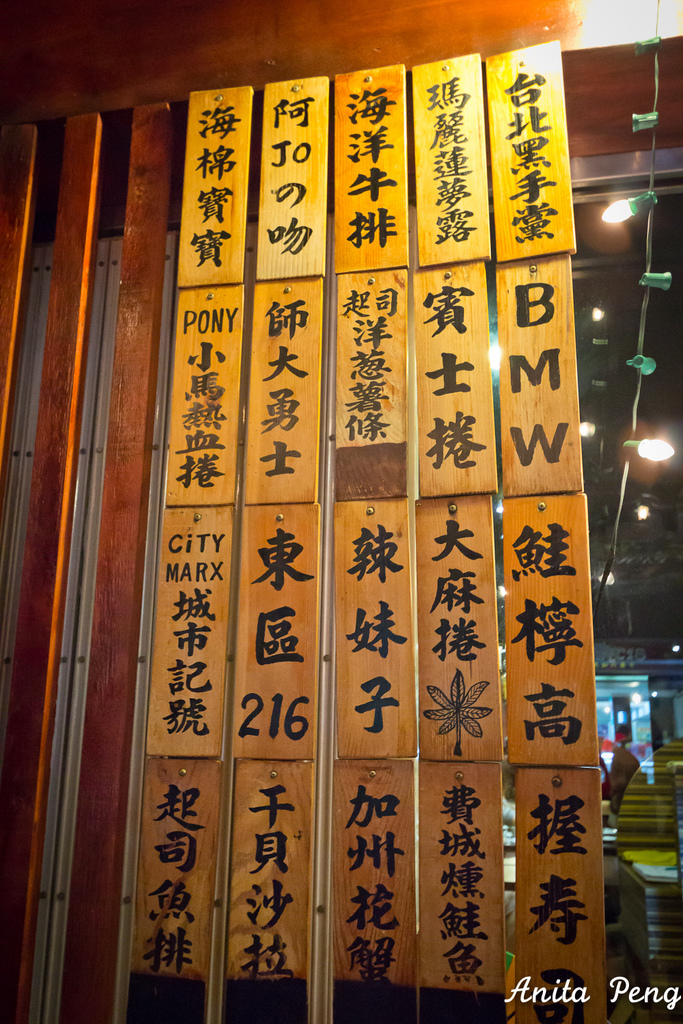 台北黑手黨
瑪麗蓮夢露
海洋牛排
阿JOの吻
海棉寶寶
BMW
賓士捲
起司
洋葱薯條
師大勇士
PONY
小馬熱血捲
鮭檸高
大麻捲
辣妹子
東區216
CiTY
MARX
城市記號
握壽司
費城燻鮭魚
加州花蟹
干貝沙拉
起司魚排
Anita Peng